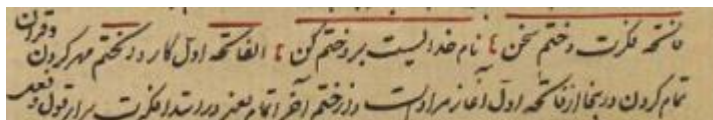 فاتحه فکرت و ختم سخن نام خدایست برو ختم کن الفاتحه اول کار و ختم مهر کردن و قرآن
تمام کردن درینجا از فاتحه اول آغاز مرادست و از ختم آخر اتمام یعنی در ابتدا فکرت قول و فعل